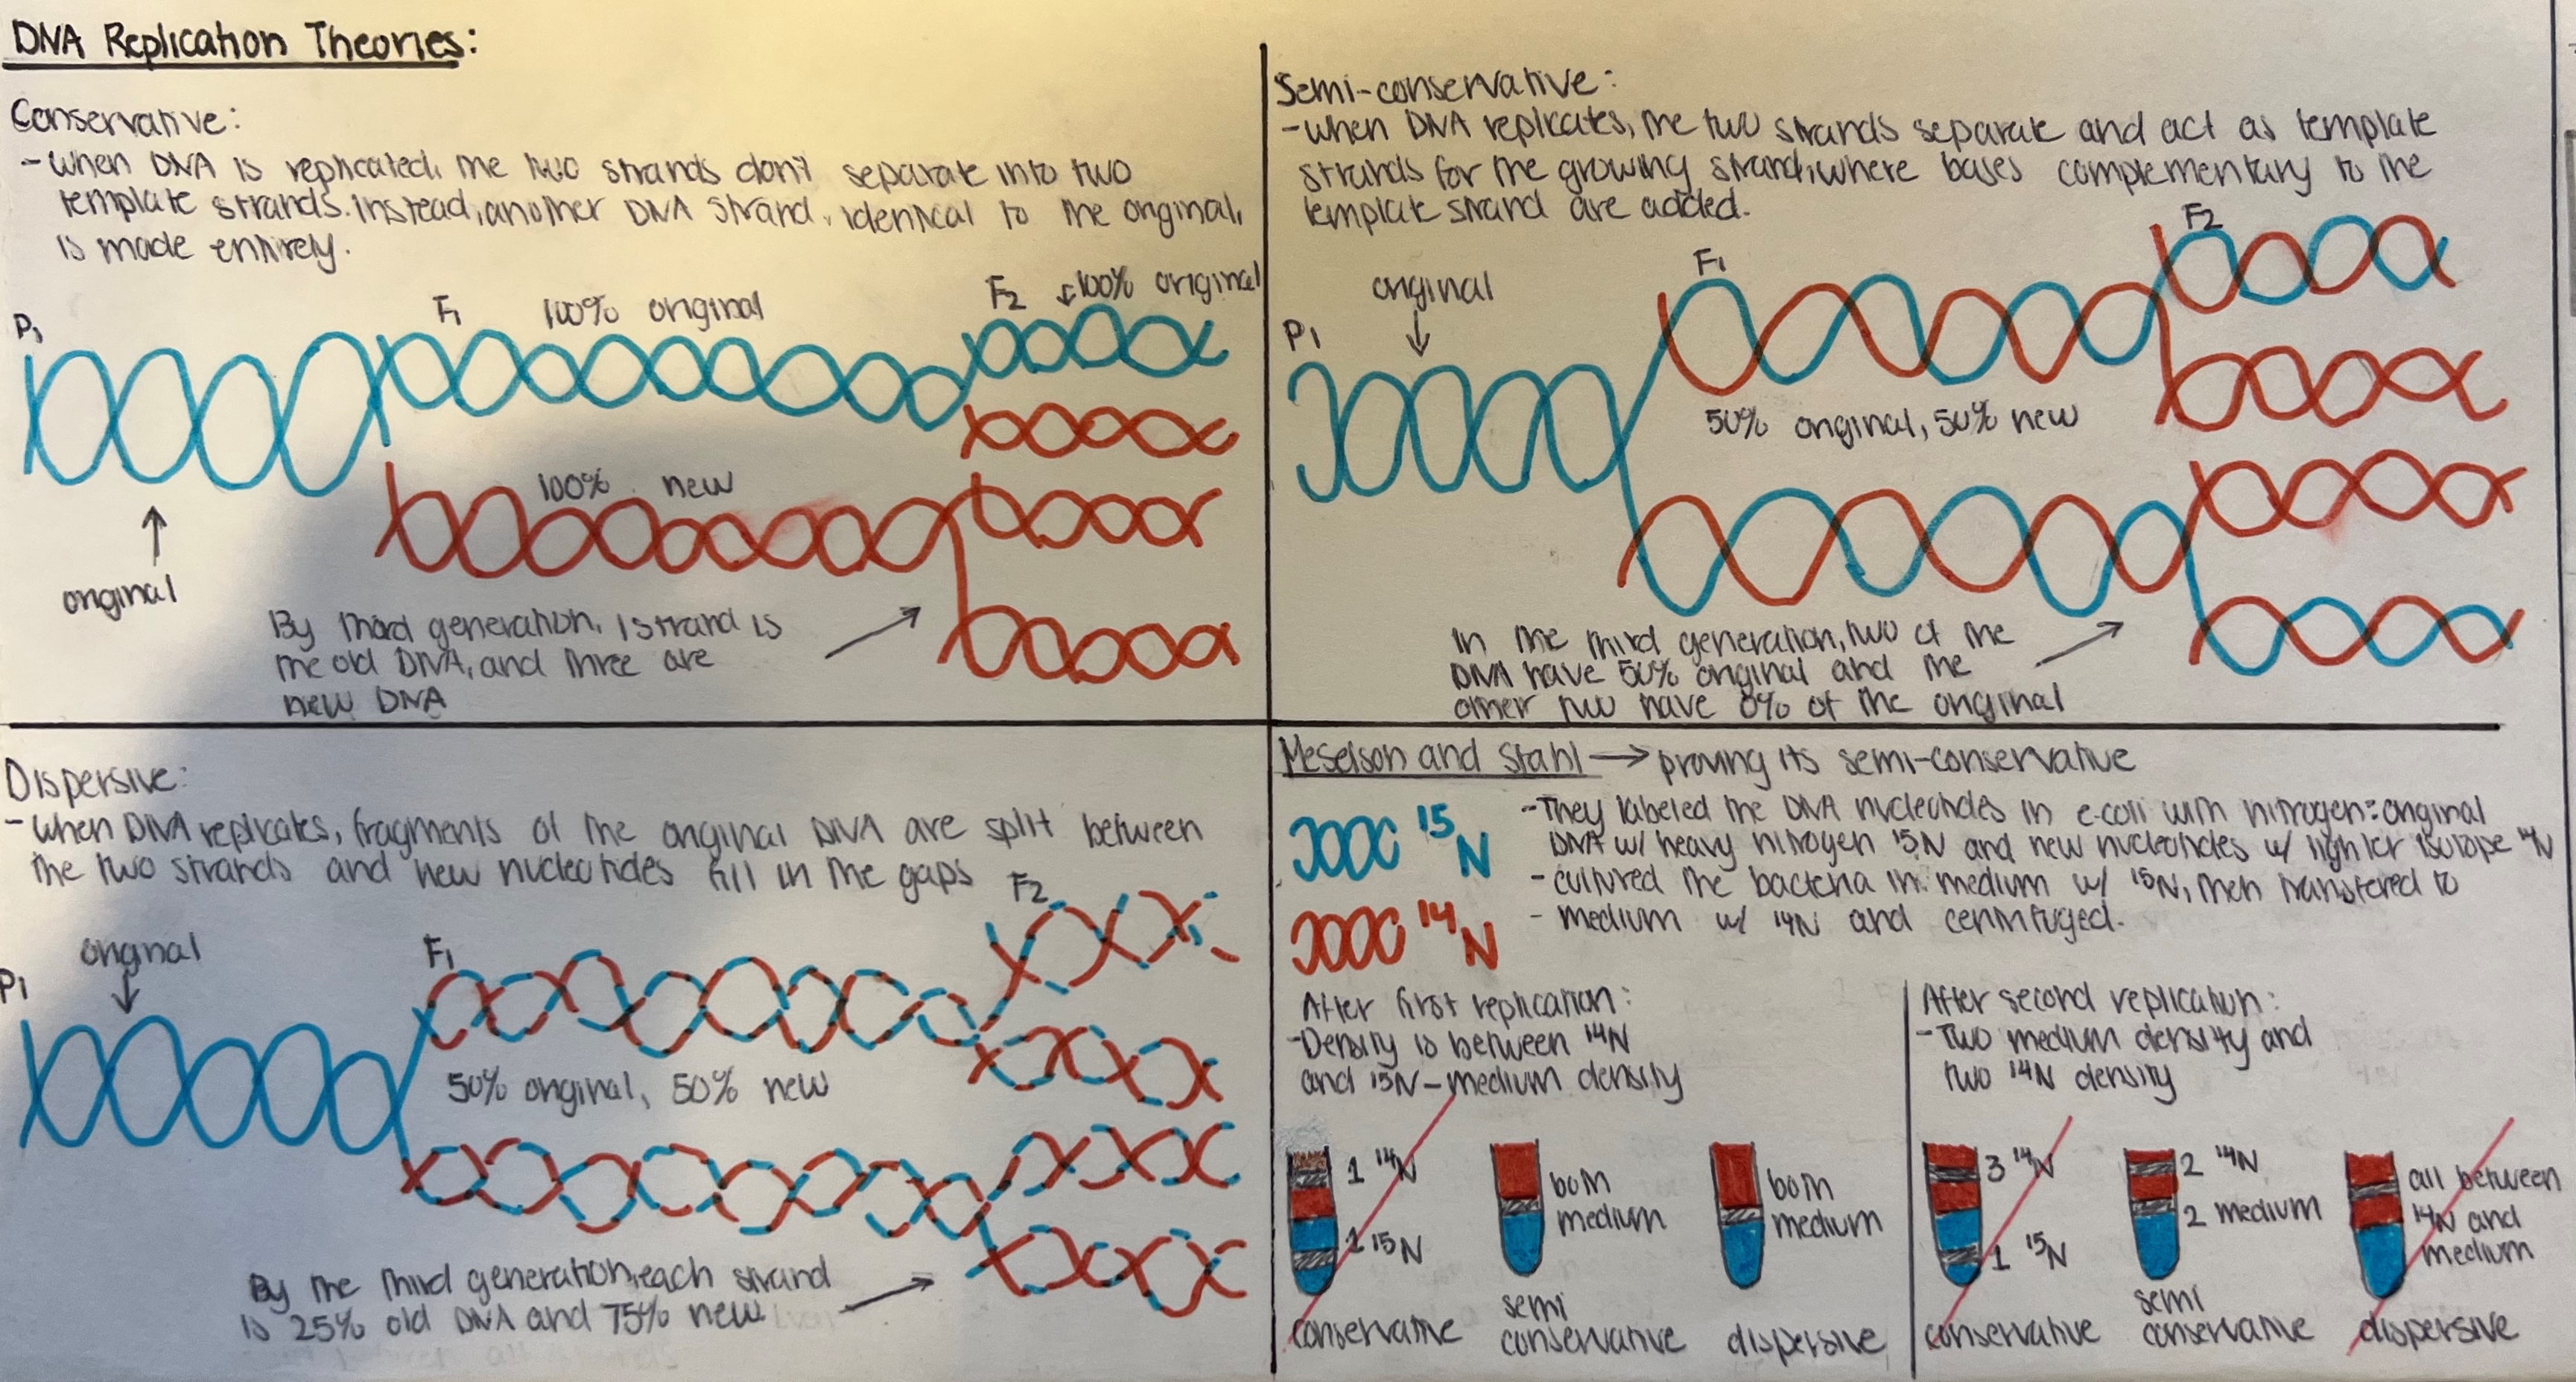 DNA Replication Theories:
Conservative:
- when DNA is replicated, the two strands don't separate into two
template strands. Instead, another DNA strand, identical to the original,
is made entirely.
P1
F1
100% original
F2
100% original
100% new
original
By third generation, 1 strand is
the old DNA, and three are
new DNA
Semi-conservative:
- when DNA replicates, the two strands separate and act as template
strands for the growing strand, where bases complementary to the
template strand are added.
P1
original
F1
F2
50% original, 50% new
In the third generation, two of the
DNA have 50% original and the
other two have 0% of the original
Dispersive:
- when DNA replicates, fragments of the original DNA are split between
the two strands and new nucleotides fill in the gaps
P1
original
F1
F2
50% original, 50% new
By the third generation, each strand
is 25% old DNA and 75% new
Meselson and Stahl → proving its semi-conservative
15N
14N
- They labeled the DNA nucleotides in e.coli with nitrogen: original
DNA w/ heavy nitrogen 15N and new nucleotides w/ lighter isotope 14N
- cultured the bacteria in medium w/ 15N, then transfered to
- medium w/ 14N and centrifuged.
After first replication:
- Density is between 14N
and 15N - medium density
1 14N
1 15N
conservative
both
medium
semi
conservative
both
medium
dispersive
After second replication:
- Two medium density and
two 14N density
3 14N
1 15N
conservative
2 14N
2 medium
semi
conservative
all between
14N and
medium
dispersive